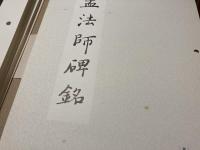 孟法師碑銘